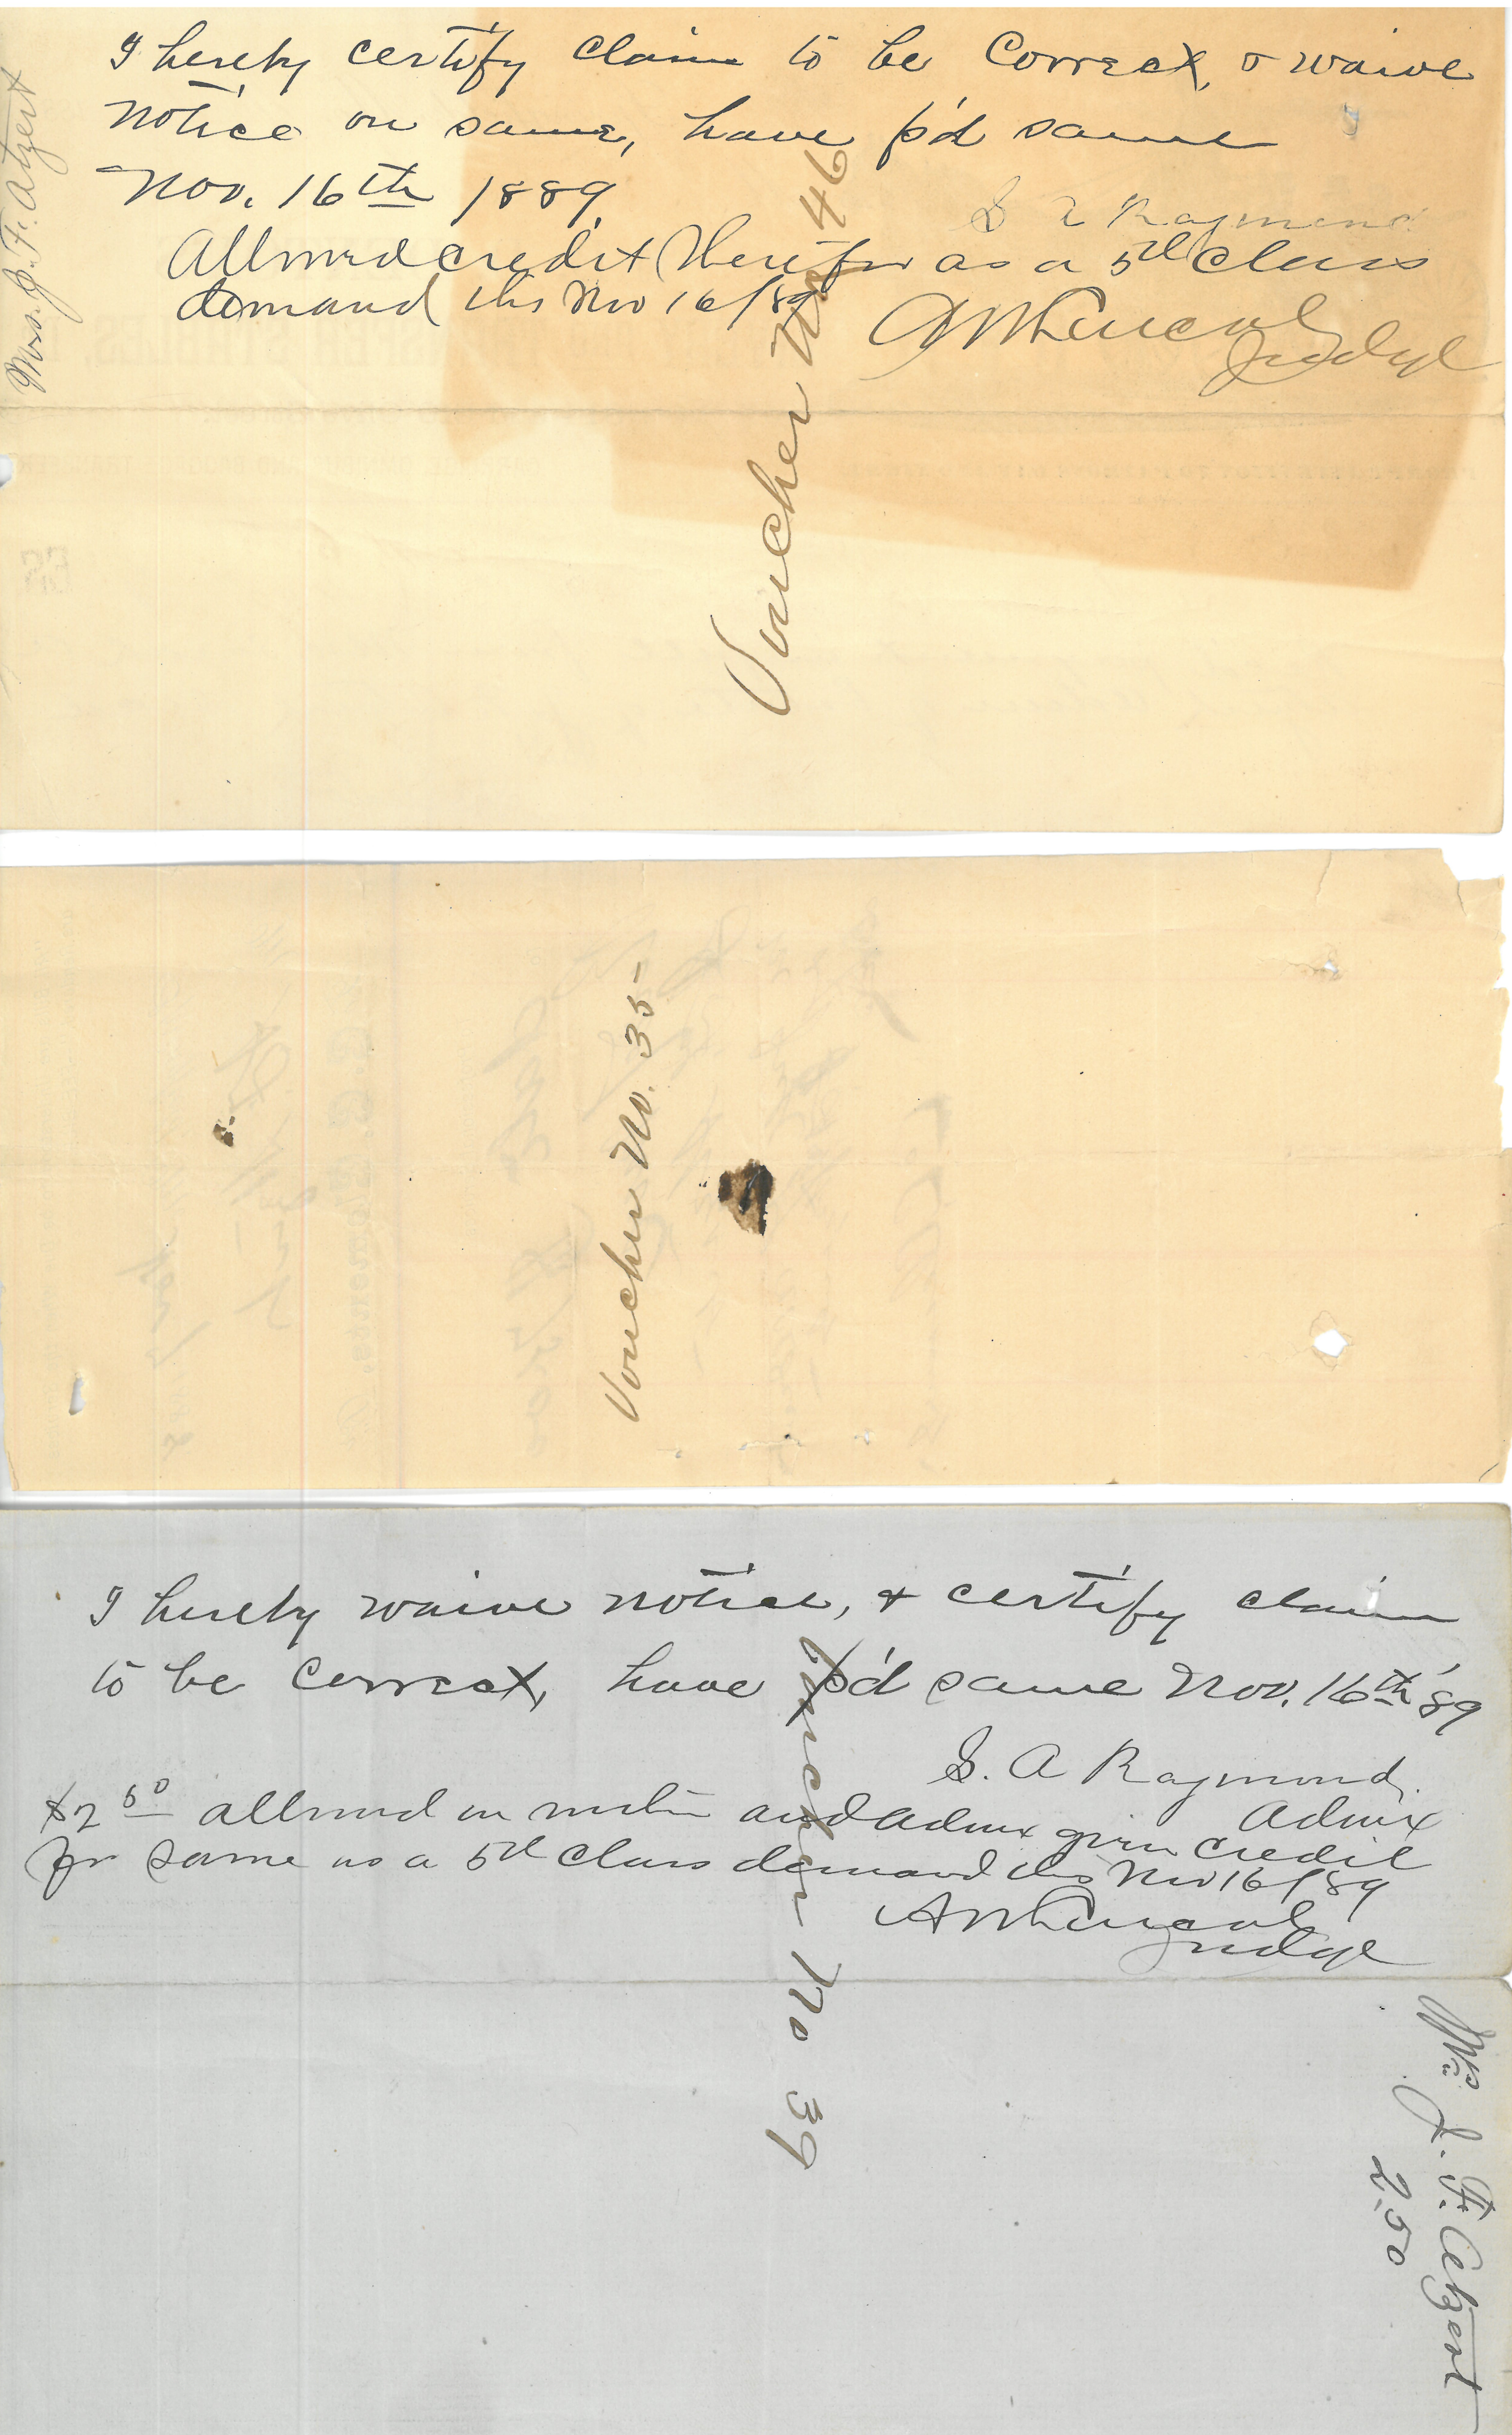 I hereby certify claim to be Correct, & waive
notice on same, have p'd same
Nov. 16th 1889.
S A Raymond
Allowed credit therefor as a 5th class
demand this Nov 16/89
Judge
Mrs. J. F. Atzert
Voucher No 46
Voucher No. 35
I hereby waive notice, & certify claim
to be correct, have p'd same Nov. 16th '89
S. A Raymond,
Admx
$2 50 allowed on motion and Admx given credit
for same as a 5th class demand this Nov 16/89
Judge
Voucher No 39
Mrs J. F. Atzert
2.50